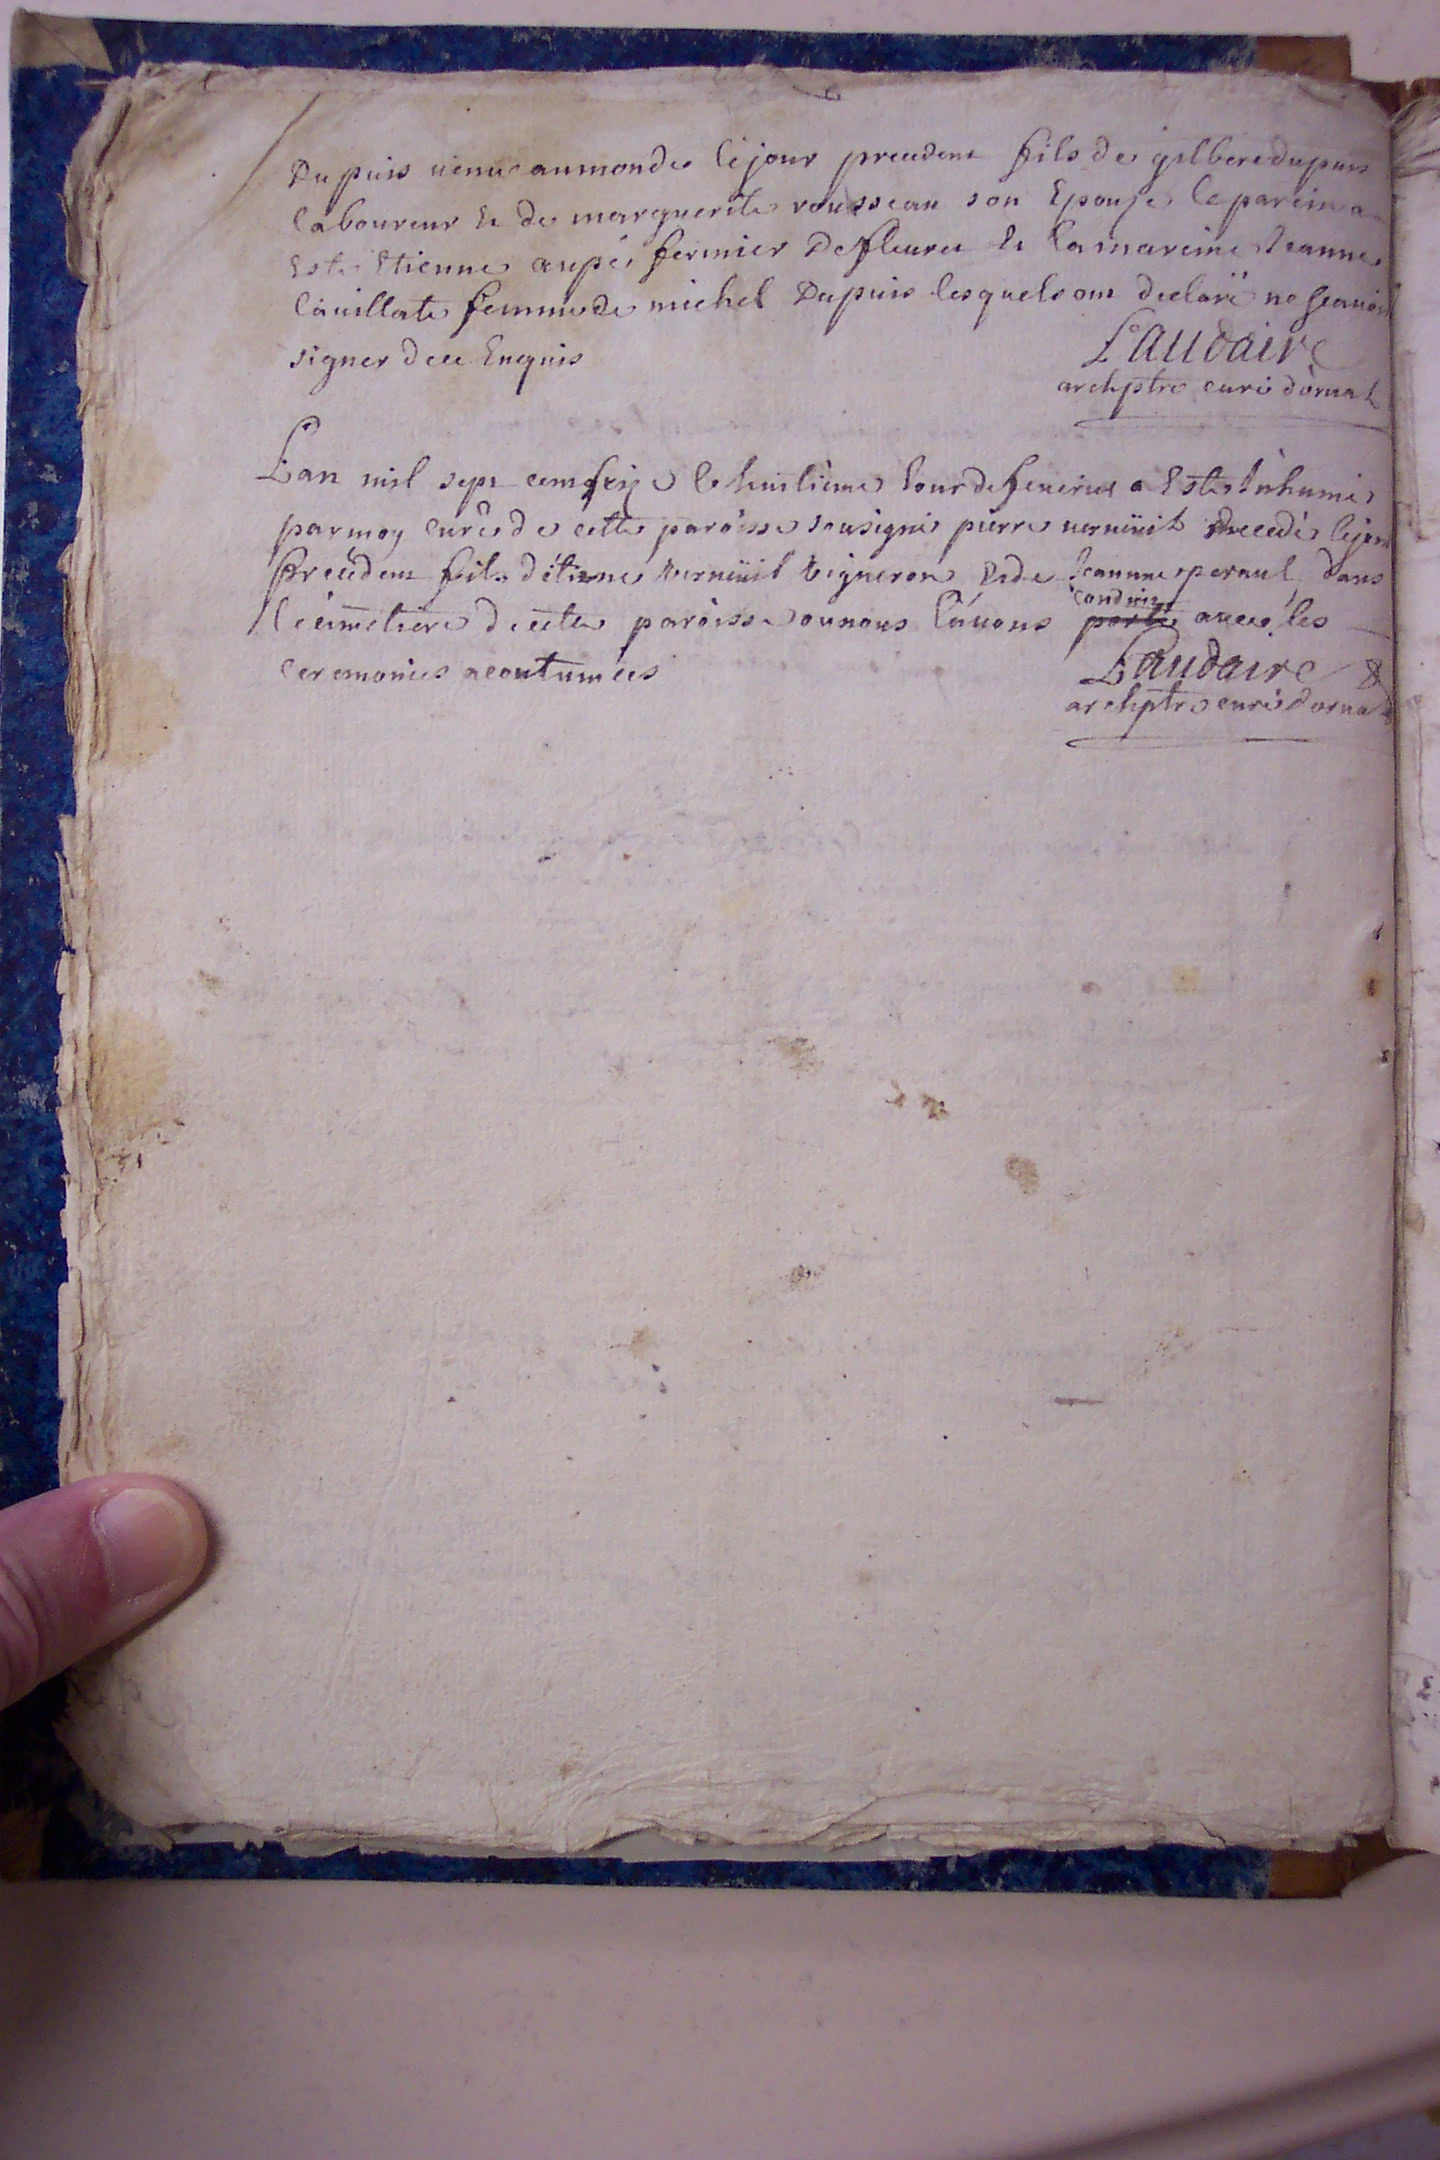 Dupuis venu au monde le jour precedent fils de gilbert dupuis
laboureur Et de marguerite rousseau son Epouse le parein a
Esté Etienne aupei fermier De fleuret Et la mareine Jeanne
lauillate femme de michel Dupuis lesquels ont declaré ne sçauoir
signer de ce Enquis
Laudaire
archptre curé d'ornat
Lan mil sept cent seize le huitième Iour de feurier a Esté Inhumé
par moy curé de cette paroisse sousigné pierre uernüil decedé le jour
precedent fils d'étienne uernüil uigneron Et de Jeanne peraul dans
le cimetiere de cette paroisse ou nous l'auons conduit auec les
ceremonies acoutumées
Laudaire
archptre curé dornat